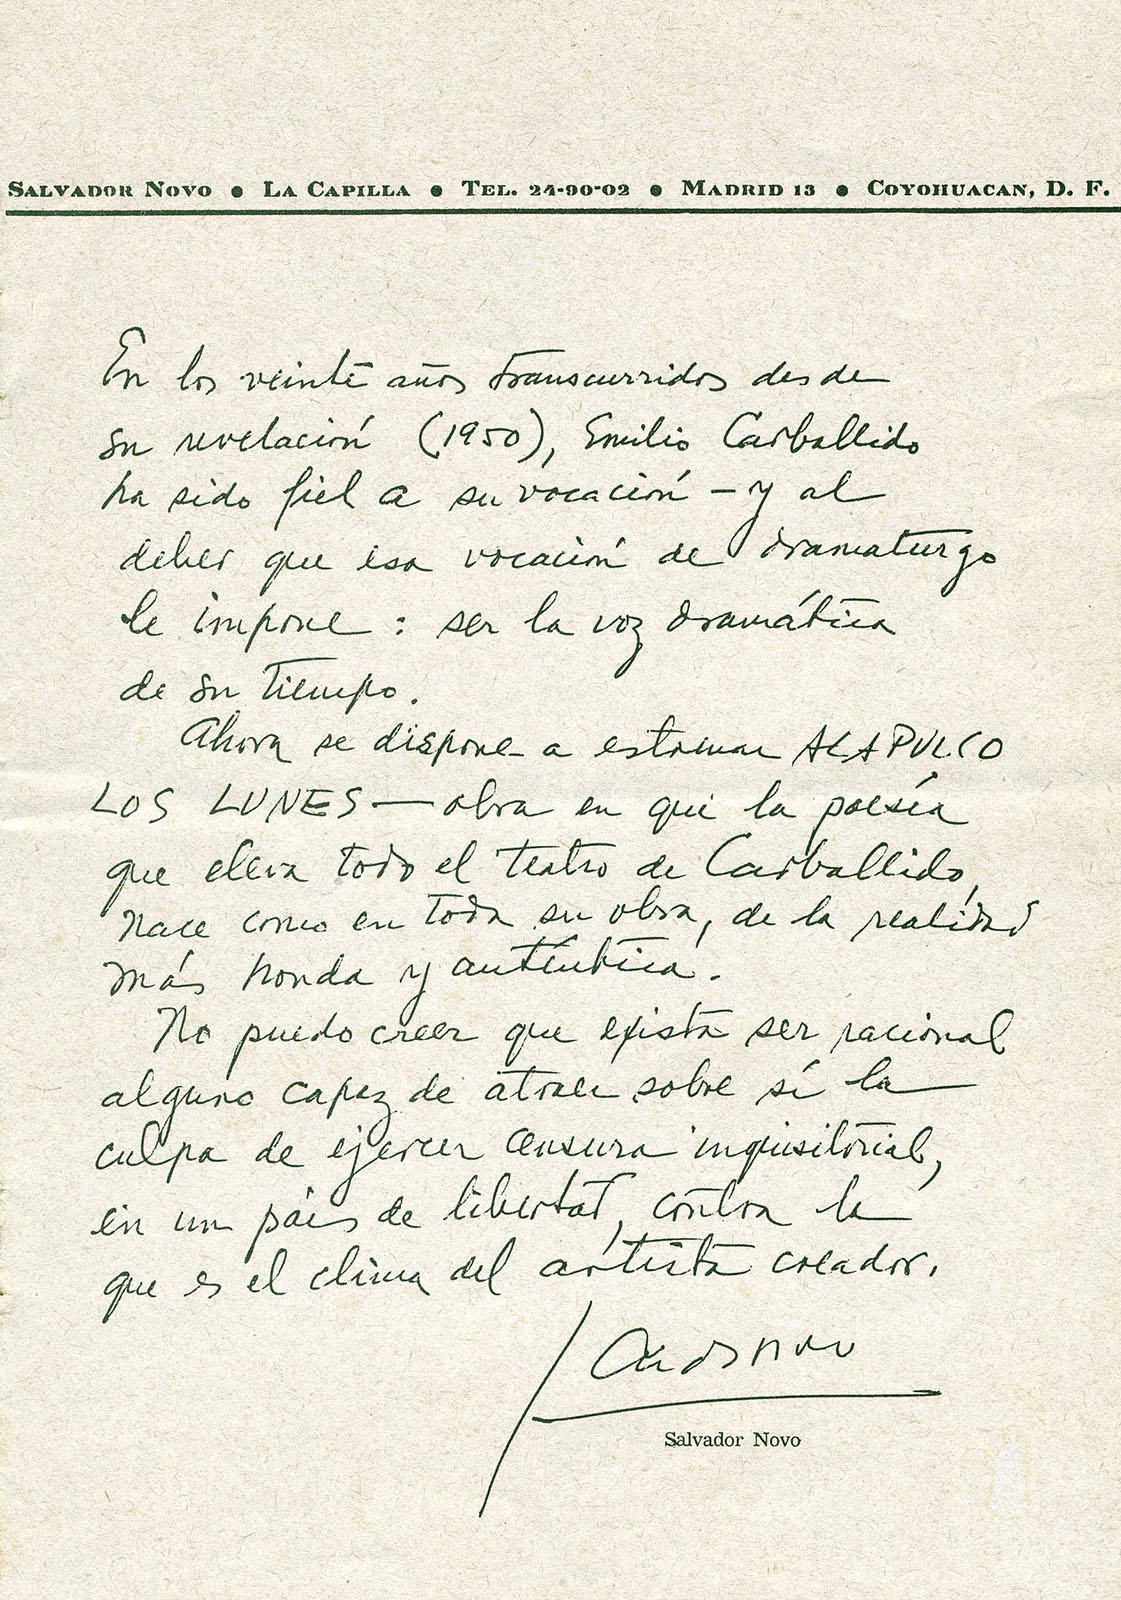 SALVADOR NOVO ● LA CAPILLA ● TEL. 24-90-02 ● MADRID 13 ● COYOHUACAN, D. F.
En los veinte años transcurridos desde
su revelación (1950), Emilio Carballido
ha sido fiel a su vocación - y al
deber que esa vocación de dramaturgo
le impone: ser la voz dramática
de su tiempo.
Ahora se dispone a estrenar ACAPULCO
LOS LUNES — obra en que la poesía
que eleva todo el teatro de Carballido,
nace como en toda su obra, de la realidad
más honda y auténtica.
No puedo creer que exista ser racional
alguno capaz de atraer sobre sí la
culpa de ejercer censura inquisitorial,
en un país de libertad, contra la
que es el clima del artista creador.
Salvador Novo